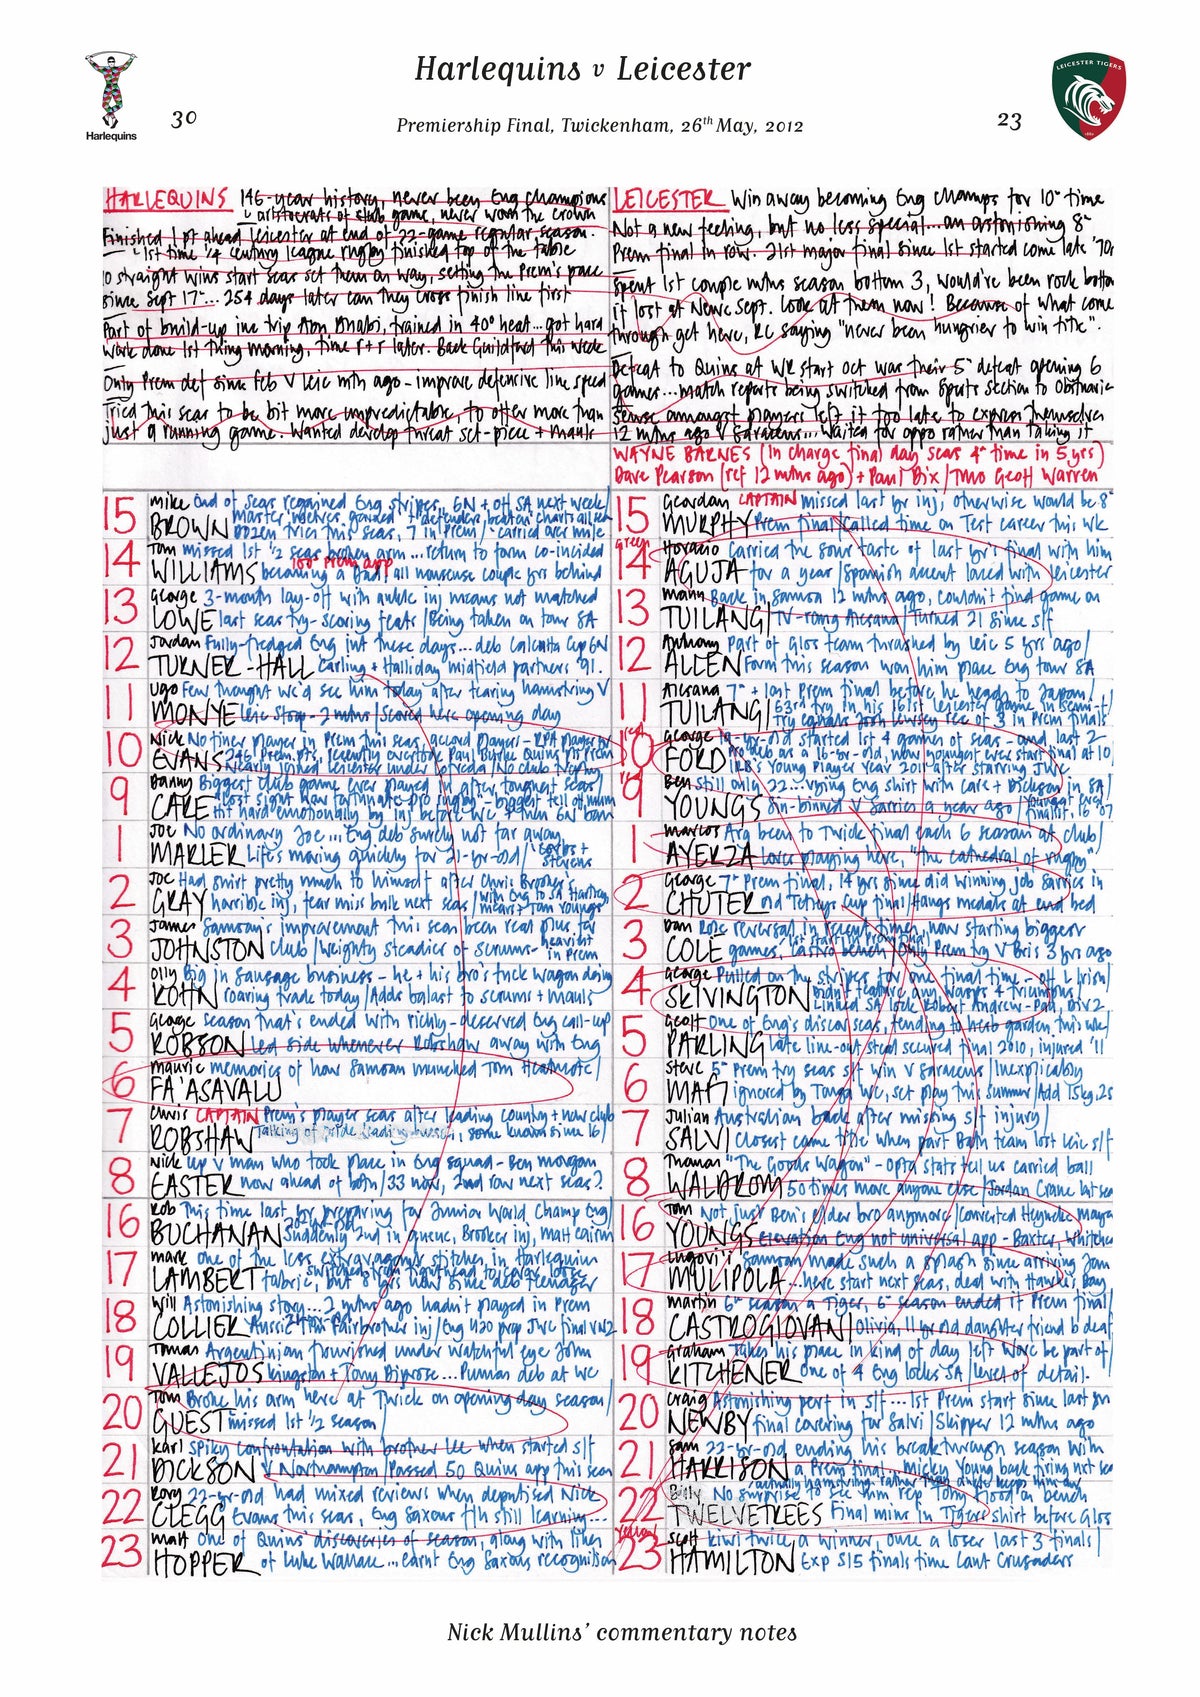 Harlequins v Leicester
LEICESTER TIGERS
Harlequins
30
Premiership Final, Twickenham, 26th May, 2012
23
HARLEQUINS 146-year history, never been Eng Champions
aristocrats of club game, never worn the crown
Finished 1 pt ahead Leicester at end of 22-game regular season.
1st time 1/4 century league rugby finished top of the table
10 straight wins start seas set them on way, setting the Prem's pace
since Sept 17... 254 days later can they cross finish line first
Part of build-up inc trip Abu Dhabi, trained in 40° heat...got hard
work done 1st thing morning, time r+r later. Back Guildford this week
Only Prem def since Feb v Leic mth ago - improve defensive line speed
Tried this seas to be bit more unpredictable, to offer more than
just a running game. Wanted develop threat set-piece + mauls
LEICESTER Win away becoming Eng Champs for 10th time
Not a new feeling, but no less special...an astonishing 8th
Prem final in row. 21st major final since 1st started come late '70s
Spent 1st couple mths season bottom 3, would've been rock bottom
if lost at Newc Sept. Look at them now! Because of what come
through get here, RC saying "never been hungrier to win title".
Defeat to Quins at WR start Oct was their 5th defeat opening 6
games...match reports being switched from Sports section to Obituaries
Sense amongst players left it too late to express themselves
12 mths ago v Saracens...waited for oppo rather than taking it
WAYNE BARNES (In charge final day seas 4th time in 5 yrs)
Dave Pearson (ref 12 mths ago) + Paul Dix / TMO Geoff Warren
15 Mike End of seas regained Eng stripes, 6N + off SA next week/
BROWN dozen tries this seas, 7 in Prem/ carried over mile
14 Tom missed 1st 1/2 seas broken arm...return to form co-incided
100th Prem app
WILLIAMS becoming a Dad/ all nonsense couple yrs behind
13 George 3-month lay-off with ankle inj means not matched
LOWE last seas try-scoring feats/Being taken on tour SA
12 Jordan Fully-fledged Eng int these days...deb Calcutta Cup 6N
TURNER-HALL Carling + Halliday midfield partners '91.
11 Ugo Few thought we'd see him today after tearing hamstring v
MONYE Leic Stoop - 2 mths/Scored here opening day
10 Nick No finer player in Prem this seas, accord players - RPA player yr
EVANS 246 Prem pts, recently overtook Paul Burke Quins pts Prem
Nearly joined Leicester under Loffreda/No club trophy
9 Danny Biggest club game ever played in after toughest seas/
CARE lost sight how fortunate pro rugby - biggest tell off mum
hit hard emotionally by inj before WC + then 6N ban
1 Joe No ordinary Joe...Eng deb surely not far away,
MARLER Life's moving quickly for 21-yr-old/ Corbs + Stevens
2 Joe Had shirt pretty much to himself after Chris Brooker's
GRAY horrible inj, fear miss bulk next seas/with Eng to SA Hartley
means + Tom Youngs
3 James Samoan's improvement this seas been real plus for
JOHNSTON club/Weighty steadier of scrums - heaviest in Prem
4 Olly Big in sausage business - he + his bro's truck wagon doing
KOHN roaring trade today/Adds balast to scrums + mauls
5 George season that's ended with richly-deserved Eng call-up
ROBSON led side whenever Robshaw away with Eng
6 Maurie memories of how Samoan munched Tom
FA'ASAVALU
7 Chris CAPTAIN Prem's player seas after leading country + now club
ROBSHAW Talking of pride, some known since 16/
8 Nick up v man who took place in Eng squad - Ben Morgan
EASTER now ahead of both/33 now, 2nd row next seas?
16 Rob This time last yr preparing for Junior World Champ Eng/
BUCHANAN Suddenly 2nd in queue, Brooker inj, Matt Cairns
17 Mark one of the less extravagant stitches in Harlequin
LAMBERT fabric, but 8 yrs now since deb teenager
18 Will Astonishing story...2 mths ago hadn't played in Prem
COLLIER Aussie Tom Fairbrother inj/Eng U20 prop JWC final v NZ
19 Tomas Argentinian flourished under watchful eye John
VALLEJOS Kingston + Tony Diprose...Pumas deb at WC
20 Tom Broke his arm here at Twick on opening day season/
GUEST missed 1st 1/2 season/
21 Karl Spiky confrontation with brother Lee when started s/f
DICKSON v Northampton/Passed 50 Quins app this seas
22 Rory 22-yr-old had mixed reviews when deputised Nick
CLEGG Evans this seas, Eng Saxons f/h still learning...
23 Matt One of Quins' discoveries of season, along with likes
HOPPER of Luke Wallace...earnt Eng Saxons recognition
15 Geordan CAPTAIN missed last yr inj, otherwise would be 8th
MURPHY Prem final/Called time on Test career this wk
green
14 Horacio Carried the sour taste of last yr's final with him
AGULLA for a year/Spanish accent laced with Leicester
13 Manu Back in Samoa 12 mths ago, couldn't find game on
TUILANGI TV - rang Alesana/Turned 21 since s/f
12 Anthony Part of Glos team thrashed by Leic 5 yrs ago/
ALLEN Form this season won him place Eng tour SA
11 Alesana 7th + last Prem final before he heads to Japan/
TUILANGI 63rd try in his 161st Leicester game in semi-f/
Try equals Josh Lewsey rec of 3 in Prem finals
red
10 George 19-yr-old started 1st 4 games of seas - and last 2
FORD Pro deb as a 16-yr-old, now youngest ever start final at 10/
IRB's Young Player Year 2011 after starring JWC
red
9 Ben Still only 22...vying Eng shirt with Care + Dickson in SA/
YOUNGS Sin-binned v Sarries a year ago/Youngest ever finalist, 16 '07
1 Marcos Arg been to Twick final each 6 season at club/
AYERZA Loves playing here, "the cathedral of rugby"
2 George 7th Prem final, 14 yrs since did winning job Sarries in
CHUTER old Tetleys Cup final/Hangs medals at end bed
3 Dan Role reversal in recent times, now starting bigger
COLE games, Castro bench/Only Prem try v Bris 3 yrs ago
1st start in Prem final
4 George Pulled on the stripes for one final time - off L Irish/
SKIVINGTON Didn't feature any Wasps 4 triumphs/
Linked SA lock Robert Andrew - Dad, Div 2
5 Geoff One of Eng's discov seas, tending to herb garden this wk/
PARLING late line-out steal secured final 2010, injured '11
6 Steve 5th Prem try seas s/f win v Saracens/Inexplicably
MAFI ignored by Tonga WC, set play this summer/Add 15kg 2s
7 Julian Australian back after missing s/f injury/
SALVI Closest came title when part Bath team lost Leic s/f
8 Thomas "The Goods Wagon" - Opta stats tell us carried ball
WALDROM 50 times more anyone else/Jordan Crane
16 Tom Not just Ben's elder bro anymore/Converted Heyneke Meyer
YOUNGS elevation Eng not universal app - Baxter, Whitcher
17 Logovi'i Samoan made such a splash since arriving Jan
MULIPOLA ...here start next seas, deal with Hawke's Bay
18 Martin 6th season a Tiger, 6th season ended it Prem final/
CASTROGIOVANNI Olivia, 11 yr old daughter friend b deaf
19 Graham Takes his place in kind of day left Worc be part of/
KITCHENER One of 4 Eng locks SA/level of detail.
20 Craig Astonishing perf in s/f...1st Prem start since last Jan
NEWBY final covering for Salvi/Skipper 12 mths ago
21 Sam 22-yr-old ending his breakthrough season with
HARRISON a Prem final...Micky Young back firing next sea
22 Billy No surprise to see him rep Toby Flood on bench
TWELVETREES Final mins in Tigers shirt before Glos
Yellow
23 Scott kiwi twice a winner, once a loser last 3 finals/
HAMILTON Exp S15 finals time Cant Crusaders
Nick Mullins' commentary notes